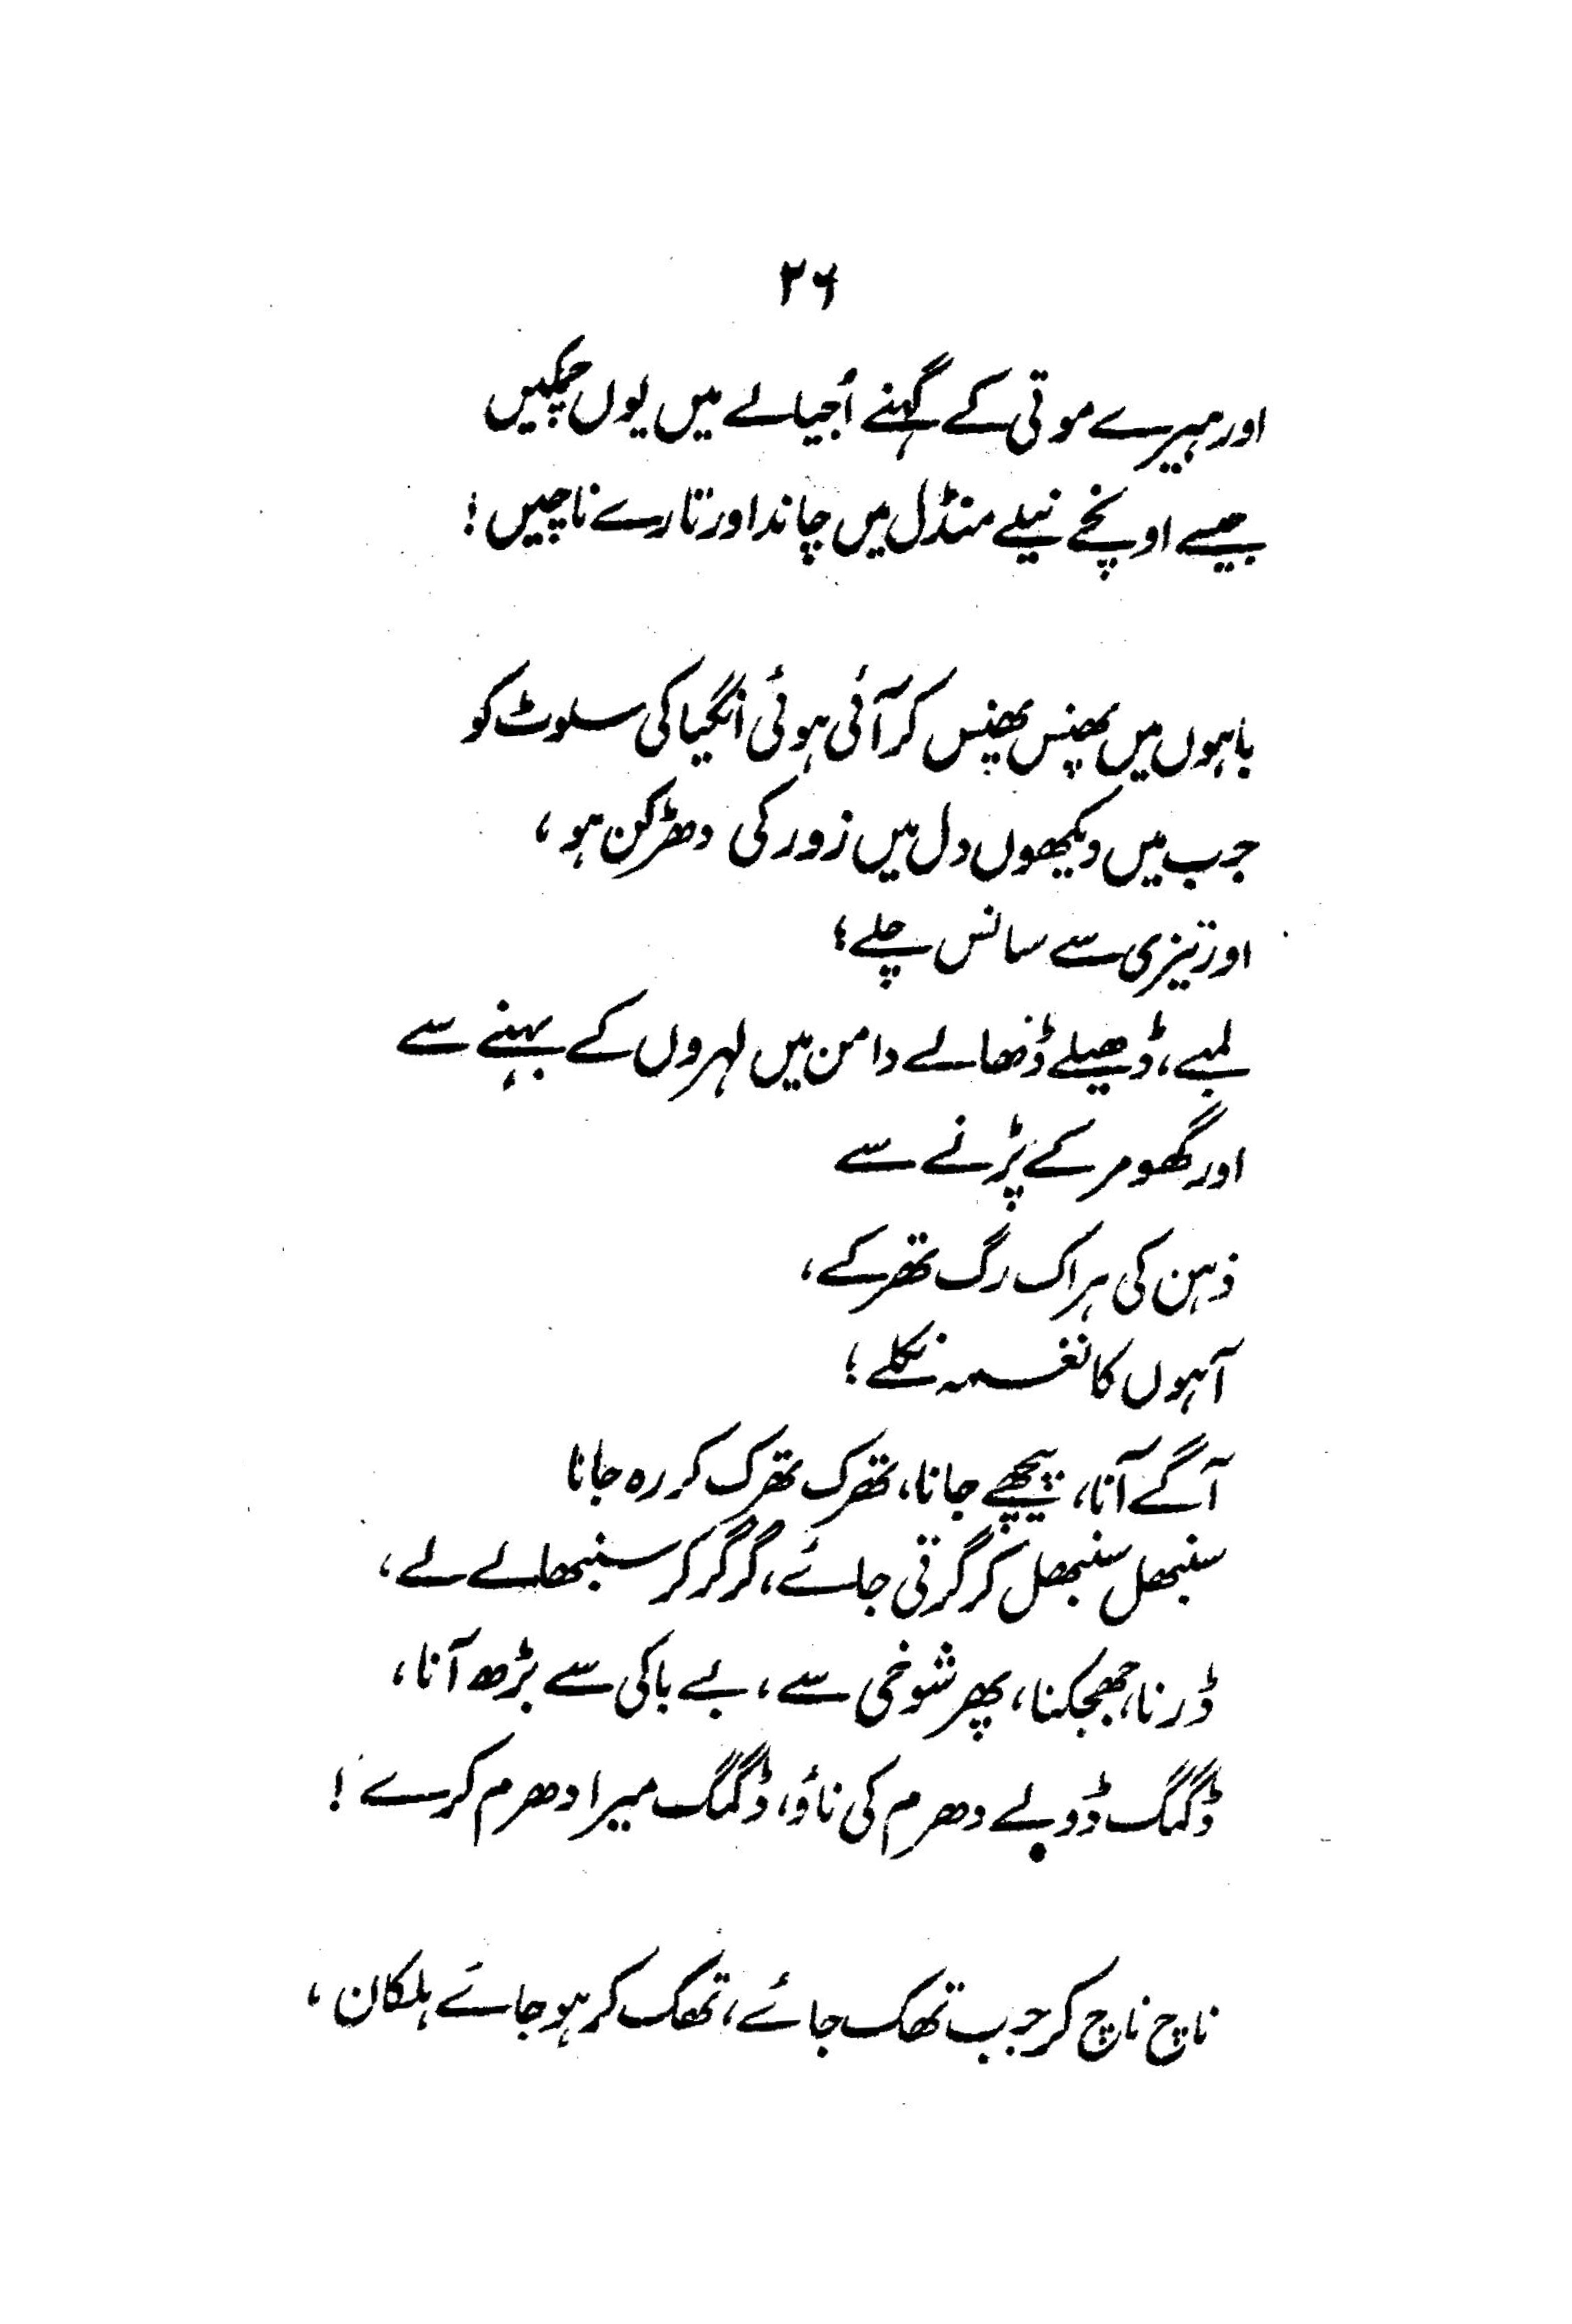 ۲۶
اور ہیرے موتی کے گہنے اُجیالے میں یوں چمکیں
جیسے اونچے نیلے منڈل میں چاند اور تارے ناچیں!
باہوں میں پھنس پھنس کر آئی ہوئی انگیا کی سلوٹ کو
جب میں دیکھوں دل میں زور کی دھڑکن ہو،
اور تیزی سے سانس چلے؛
لمبے، ڈھیلے ڈھالے دامن میں لہروں کے بہنے سے
اور گھومر کے پڑنے سے
ذہن کی ہر اک رگ تھرکے،
آہوں کا نغمہ نکلے؛
آگے آنا، پیچھے جانا، تھرک تھرک کر رہ جانا
سنبھل سنبھل کر گرتی جائے، گر گر کر سنبھالے لے،
ڈرنا، جھجکنا، پھر شوخی سے، بے باکی سے بڑھ آنا،
ڈگمگ ڈوبے دھرم کی ناؤ، ڈگمگ میرا دھرم کرے!
ناچ ناچ کر جب تھک جائے، تھک کر ہو جائے ہلکان،